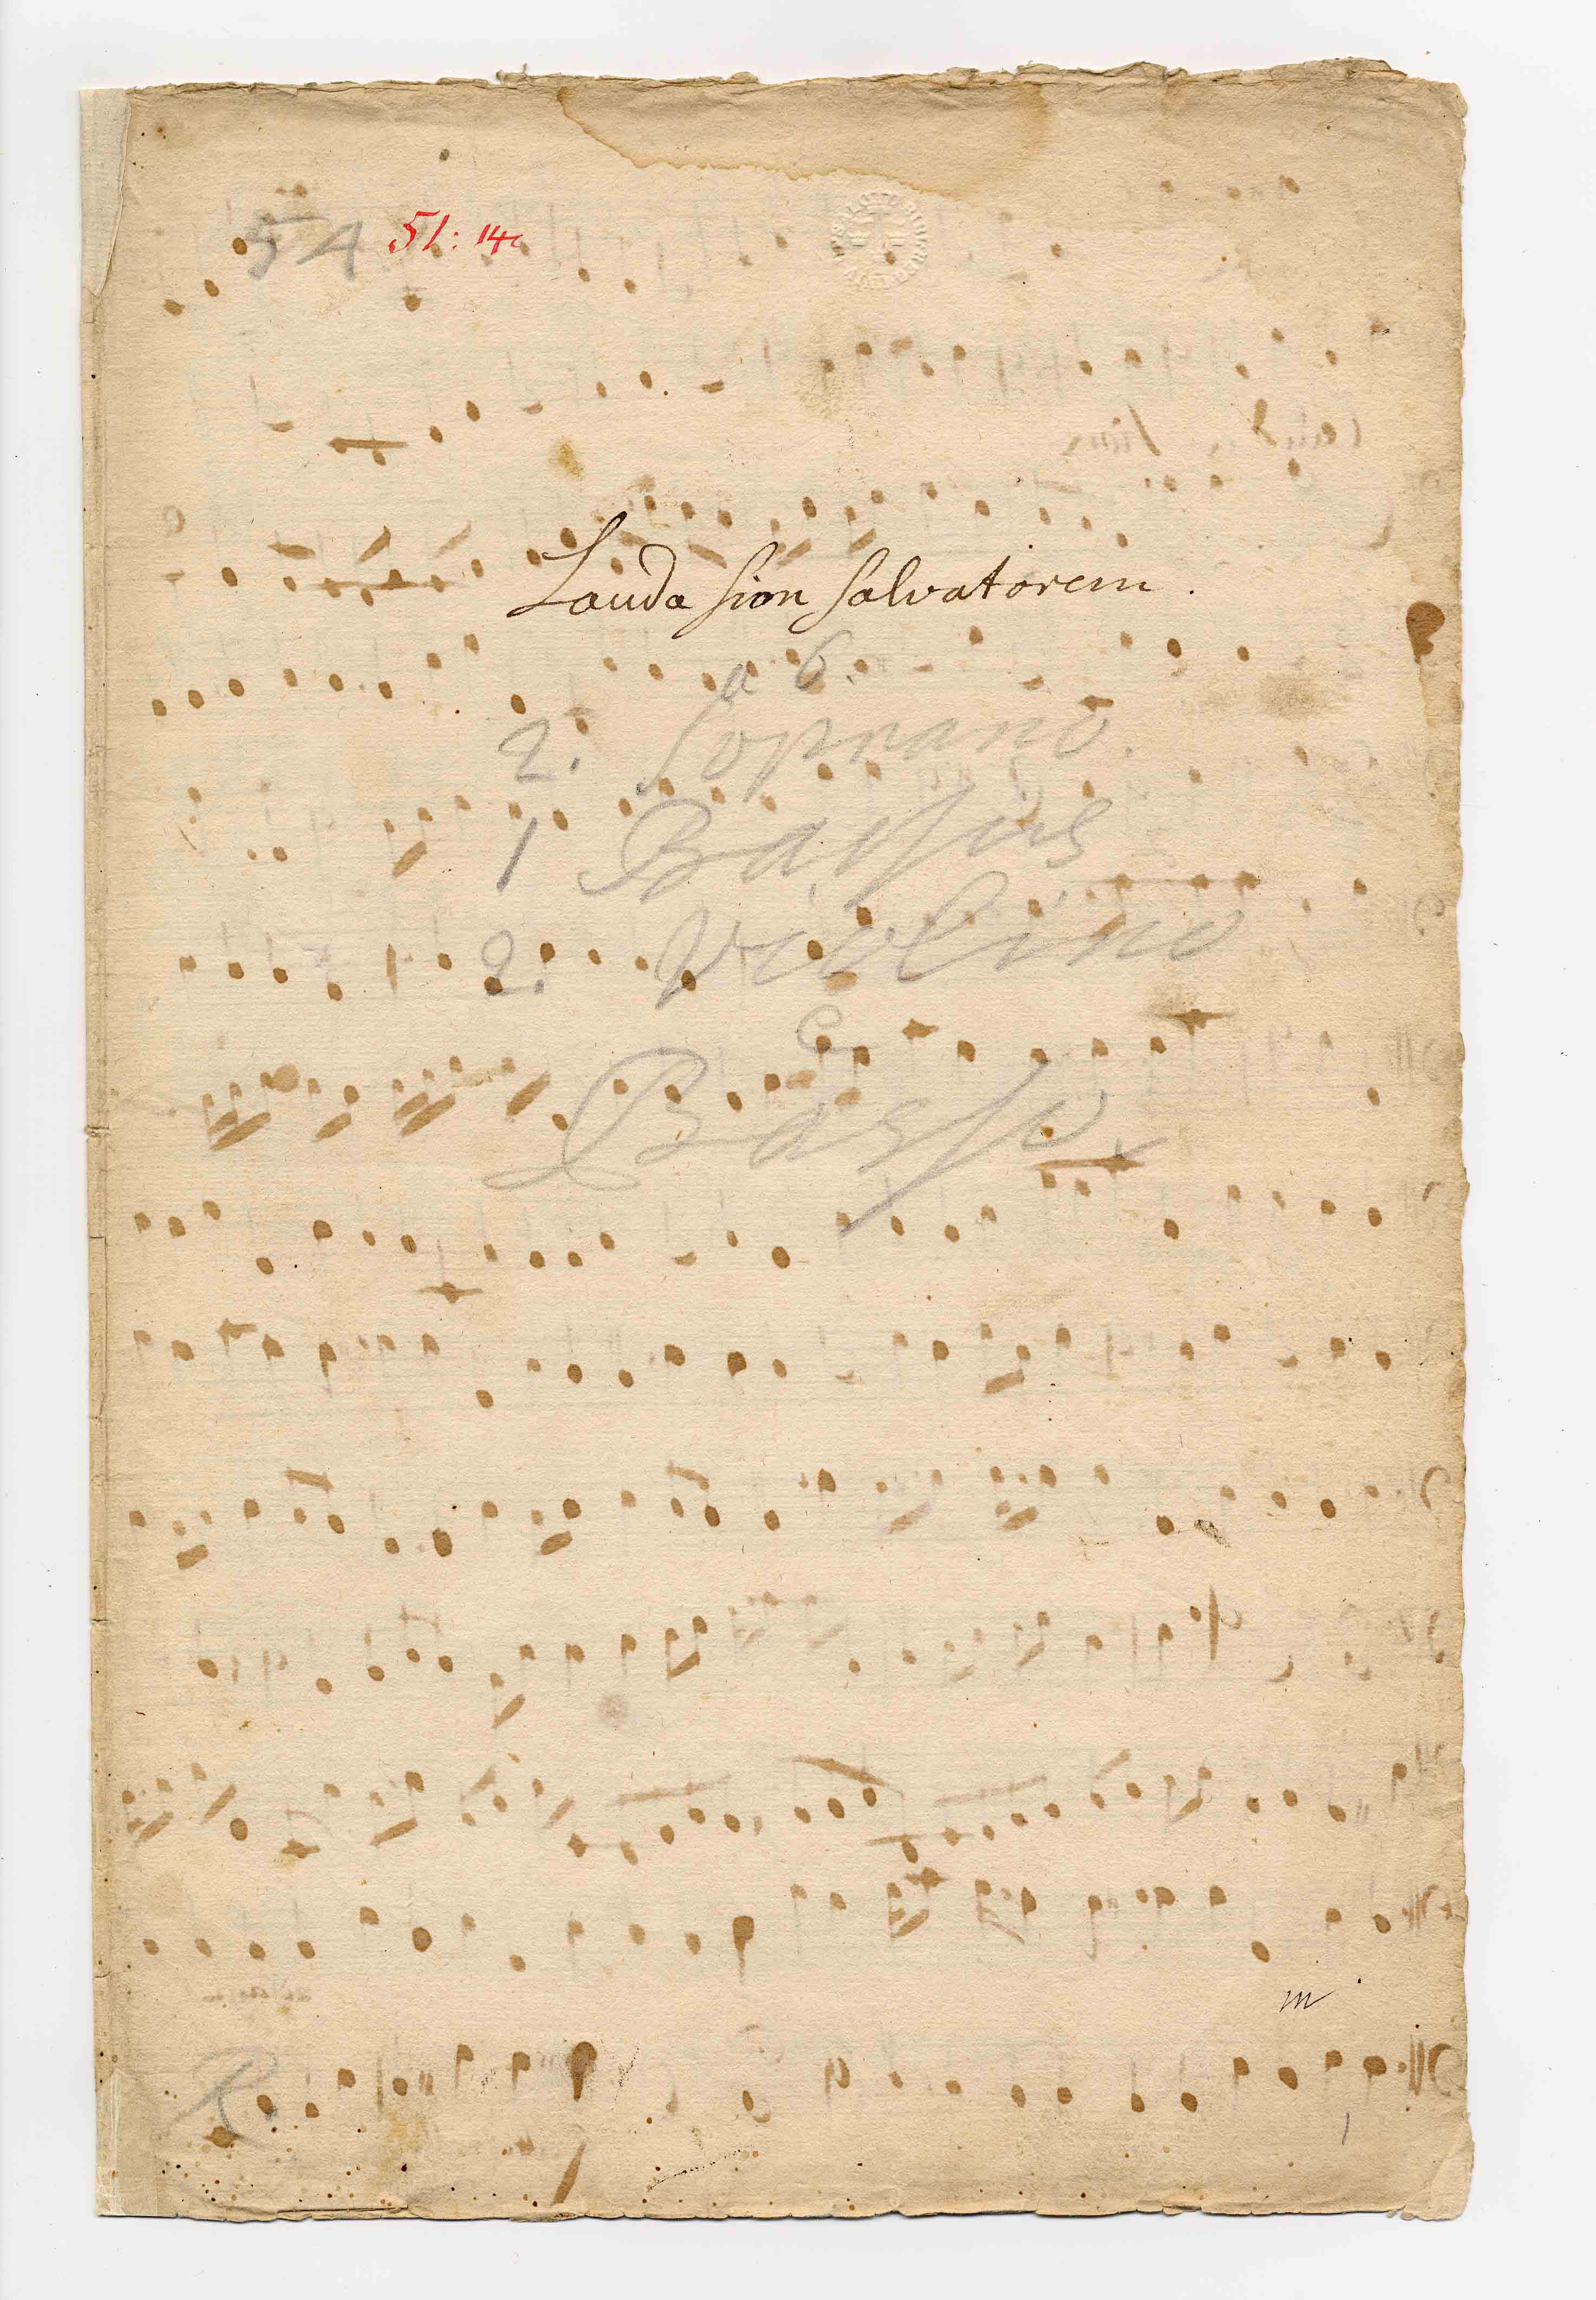 54 51: 14
Lauda sion salvatorem.
a 6.
2. Soprano.
1 Bassus
2. Violino
e
Basso.
m
R.
1